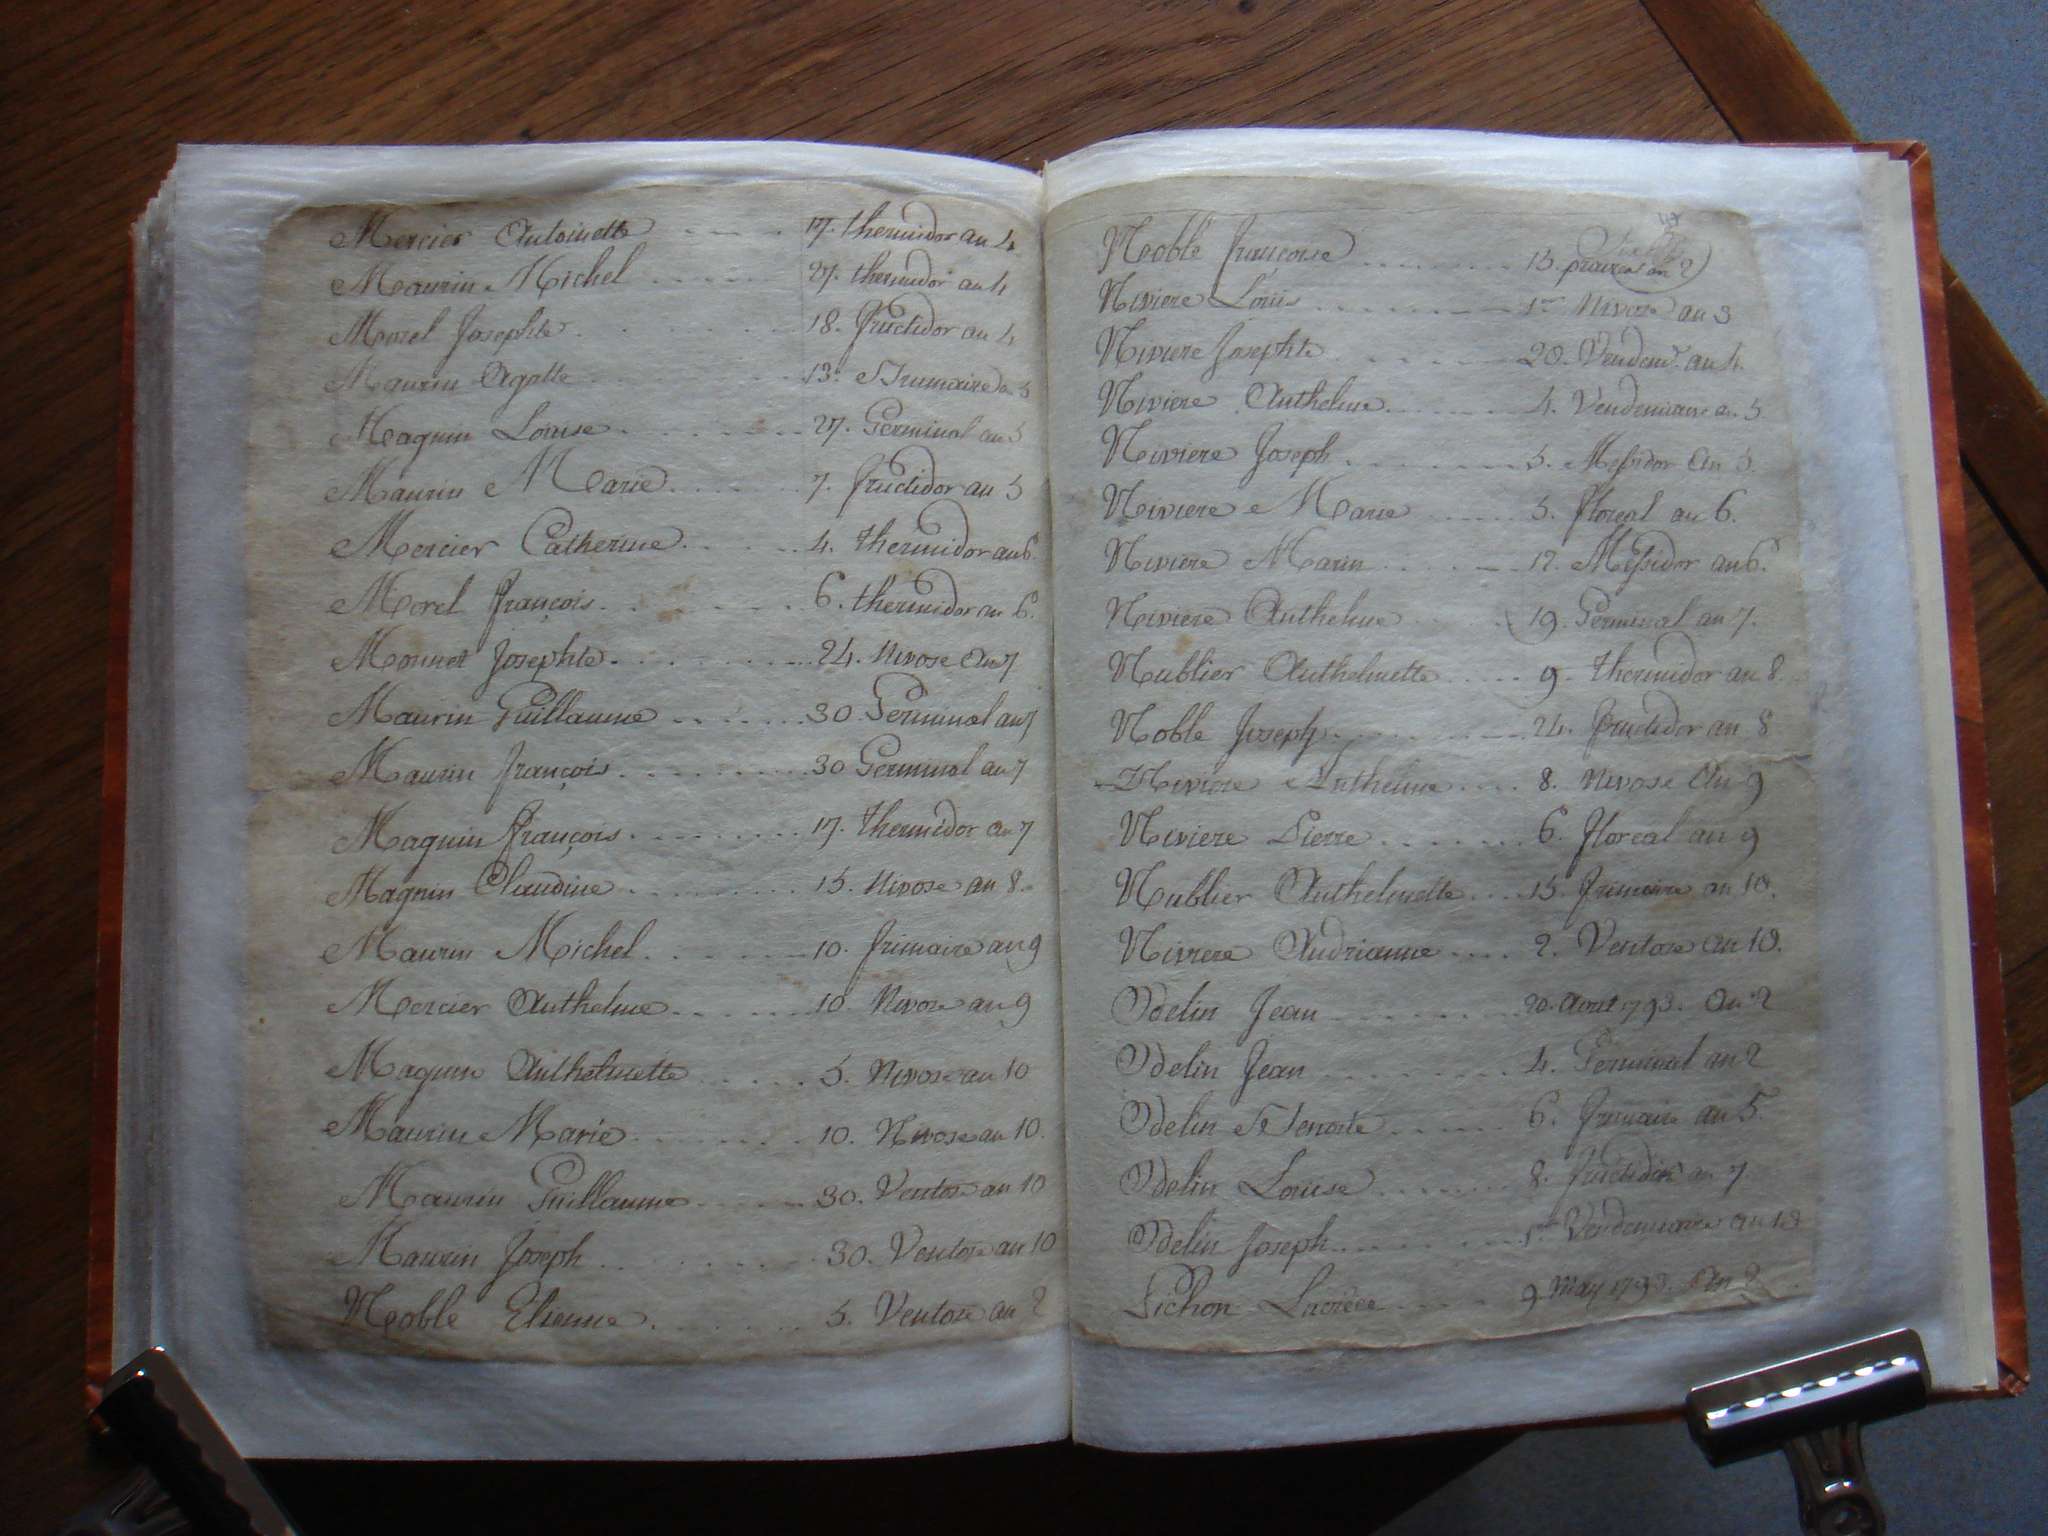 Mercier Antoinette 17. thermidor an 4
Maurin Michel 27. thermidor an 4
Morel Josephte 18. fructidor an 4
Maurin Agatte 13. Brumaire an 5
Magnin Louise 27. Germinal an 5
Maurin Marie 7. fructidor an 5
Mercier Catherine 4. thermidor an 6.
Morel françois 6. thermidor an 6.
Monnet Josephte 24. Nivose An 7
Maurin Guillaume 30 Germinal an 7
Maurin françois 30 Germinal an 7
Magnin françois 17. thermidor an 7
Magnin Claudine 15. Nivose an 8.
Maurin Michel 10. frimaire an 9
Mercier Anthelme 10. Nivose an 9
Magnin Anthelmette 5. Nivose an 10
Maurin Marie 10. Nivose an 10.
Maurin Guillaume 30. Ventose an 10
Maurin Joseph 30. Ventose an 10
Noble Etienne 5. Ventose an 2
Noble françoise 15. prairial an 2
Niviere Louis 1er Nivose an 3
Niviere Josephte 20. Vendemre an 4.
Niviere Anthelme 4. Vendemiaire an 5
Niviere Joseph 5. Messidor An 5.
Niviere Marie 5. floreal an 6.
Niviere Marin 12. Messidor an 6.
Niviere Anthelme 19. Germinal an 7.
Nublier Anthelmette 9. thermidor an 8.
Noble Joseph 24. fructidor an 8
Niviere Anthelme 8. Nivose An 9
Niviere Pierre 6. floreal an 9
Nublier Anthelmette 15. frimaire an 10.
Niviere Andrianne 2. Ventose an 10.
Odelin Jean 20. Aout 1793. An 2
Odelin Jean 4. Germinal an 2
Odelin Benoite 6. frimaire an 5.
Odelin Louise 8. fructidor an 7
Odelin Joseph 1er Vendemiaire an 10
Pichon 9. May 1793. An 2